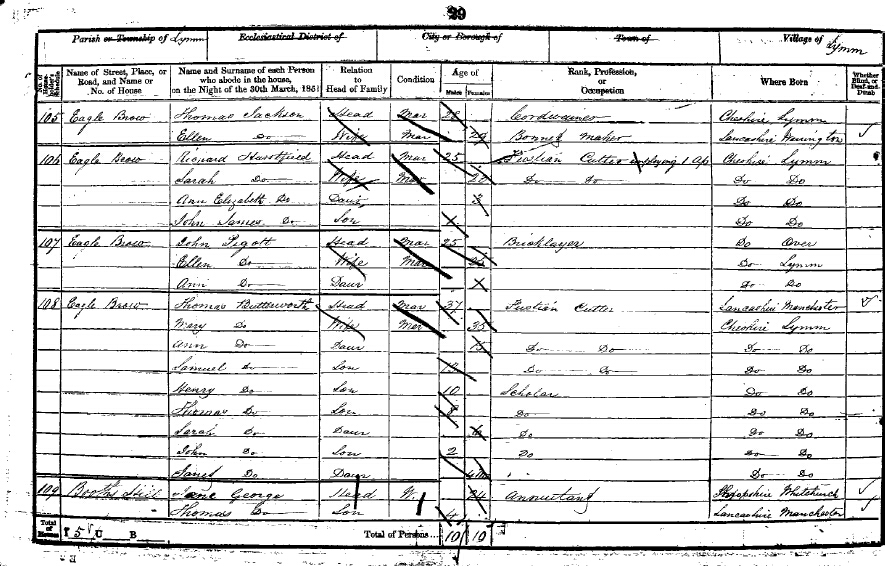 29
Parish or Township of Lymm Ecclesiastical District of City or Borough of Town of Village of Lymm
No. of Householder's Schedule Name of Street, Place, or Road, and Name or No. of House Name and Surname of each Person who abode in the house, on the Night of the 30th March, 1851 Relation to Head of Family Condition Age of Males Females Rank, Profession, or Occupation Where Born Whether Blind, or Deaf-and-Dumb
105 Eagle Brow Thomas Jackson Head Mar Cordwainer Cheshire Lymm
Ellen Do Wife Mar 29 Bonnet Maker Lancashire
106 Eagle Brow Richard Head Mar 25 Fustian Cutter employing 1 Ap Cheshire Lymm
Sarah Do Wife Mar Do Do Do Do
Ann Elizabeth Do Daur 3 Do Do
John James Do Son Do Do
107 Eagle Brow John Pigott Head Mar 25 Bricklayer Do Over
Ellen Do Wife Mar Do Lymm
Ann Do Daur Do Do
108 Eagle Brow Thomas Butterworth Head Mar 37 Fustian Cutter Lancashire Manchester
Mary Do Wife Mar 35 Cheshire Lymm
Ann Do Daur Do Do Do Do
Samuel Do Son Do Do Do Do
Henry Do Son 10 Scholar Do Do
Thomas Do Son 8 Do Do Do
Sarah Do Daur Do Do Do
John Do Son 2 Do Do Do
Janet Do Daur Do Do
109 Booths Hill Jane George Head W. 34 Annuitant Shropshire Whitchurch
Thomas Do Son Lancashire Manchester
Total of Houses I 5 U B Total of Persons... 10 10